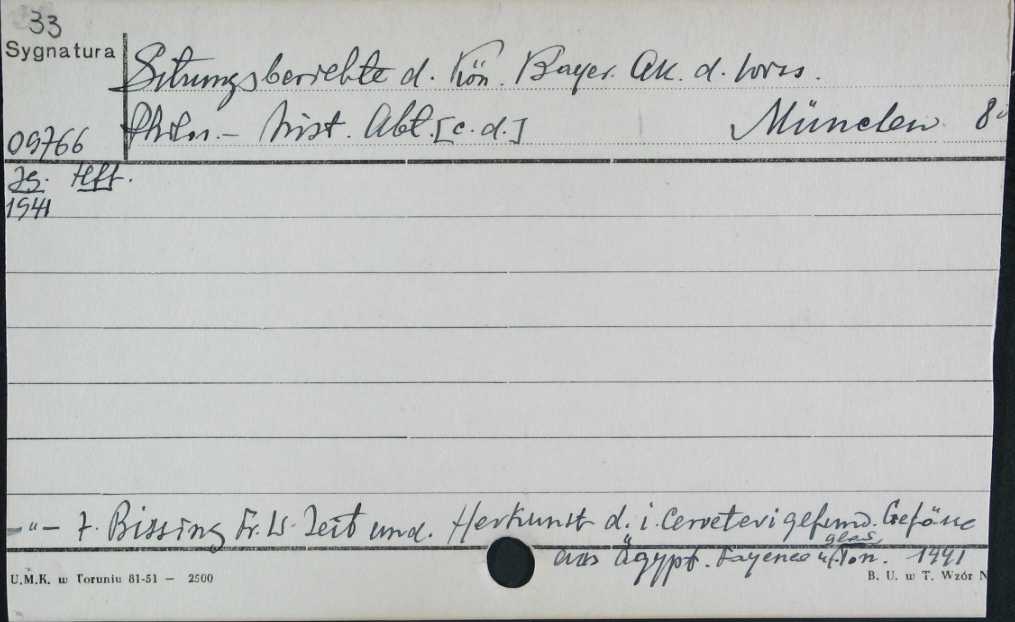 33
Sygnatura
Sitzungsberichte d. Kön. Bayer. Ak. d. Wiss.
09766
Philos.- hist. Abt. [c.d.] München 8°
Jg. Heft.
1941
-"- 7. Bissing Fr. W. Zeit und. Herkunft d. i. Cerveteri gefund. Gefässe
aus Ägypt. Fayence u. glas. Ton. 1941
U.M.K. w Toruniu 81-51 — 2500
B. U. w T. Wzór N